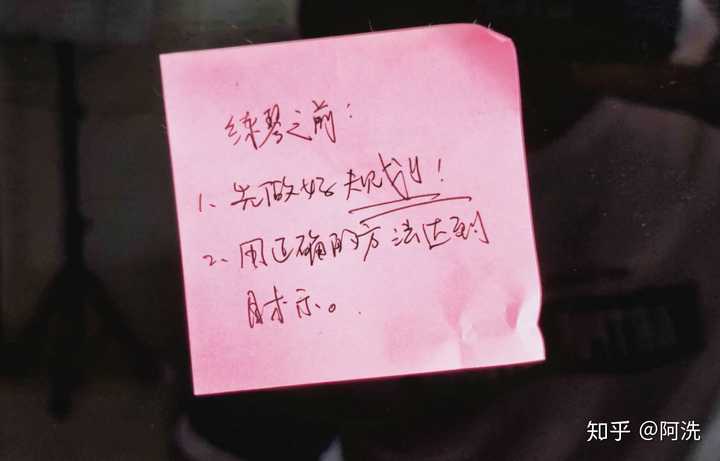 练琴之前：
1、先做好规划！
2、用正确的方法达到
目标。
知乎 @阿洗